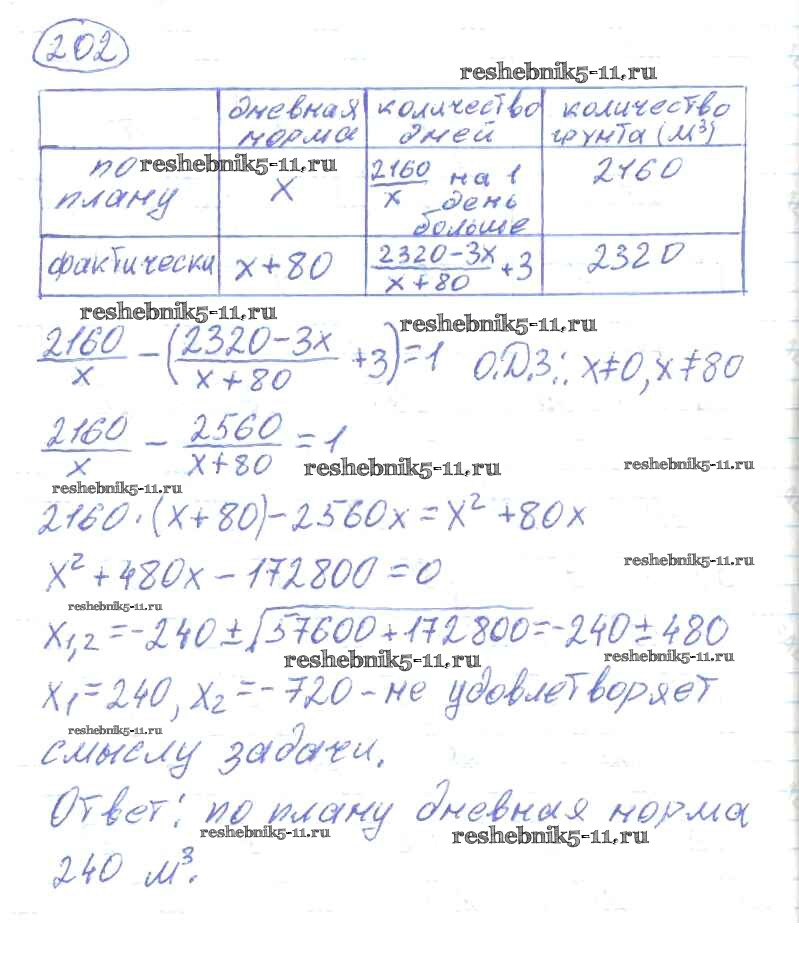 202
reshebnik5-11.ru
дневная норма | количество дней | количество грунта (м³)
по плану | x | 2160/x на 1 день больше | 2160
reshebnik5-11.ru
фактически | x+80 | (2320-3x)/(x+80) +3 | 2320
reshebnik5-11.ru
reshebnik5-11.ru
2160/x - ((2320-3x)/(x+80) +3)=1 О.Д.З.: x≠0, x≠80
2160/x - 2560/(x+80) =1
reshebnik5-11.ru
reshebnik5-11.ru
reshebnik5-11.ru
2160·(x+80)-2560x=x²+80x
reshebnik5-11.ru
x²+480x-172800=0
reshebnik5-11.ru
x₁,₂=-240±√(57600+172800)=-240±480
reshebnik5-11.ru
reshebnik5-11.ru
x₁=240, x₂=-720-не удовлетворяет
reshebnik5-11.ru
смыслу задачи.
Ответ: по плану дневная норма
reshebnik5-11.ru
reshebnik5-11.ru
240 м³.